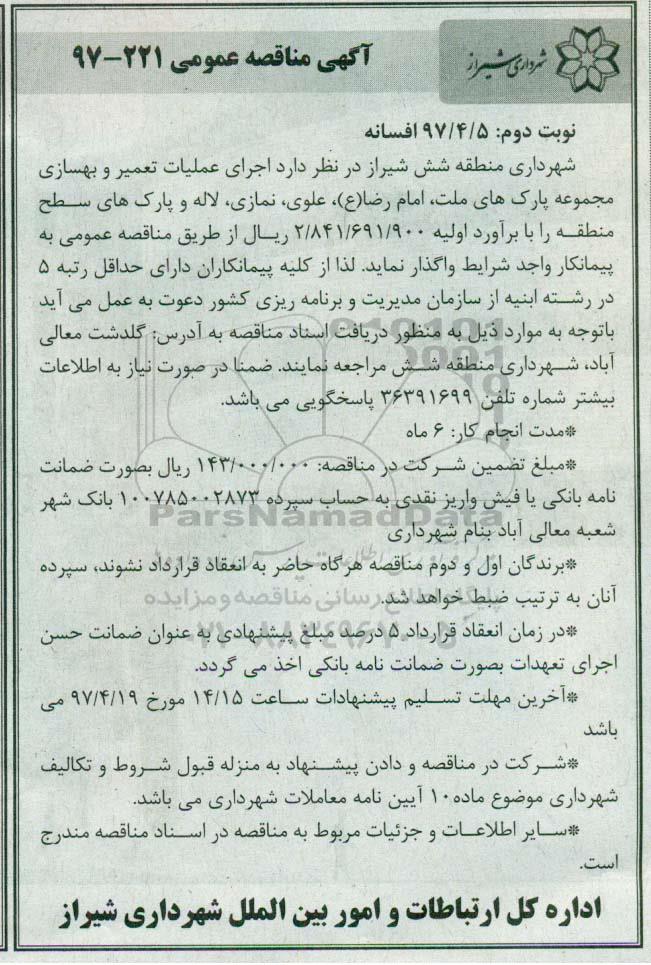 شهرداری شیراز
آگهی مناقصه عمومی ۲۲۱-۹۷
نوبت دوم: ۹۷/۴/۵ افسانه
شهرداری منطقه شش شیراز در نظر دارد اجرای عملیات تعمیر و بهسازی
مجموعه پارک های ملت، امام رضا(ع)، علوی، نمازی، لاله و پارک های سطح
منطقه را با برآورد اولیه ۲/۸۴۱/۶۹۱/۹۰۰ ریال از طریق مناقصه عمومی به
پیمانکار واجد شرایط واگذار نماید. لذا از کلیه پیمانکاران دارای حداقل رتبه ۵
در رشته ابنیه از سازمان مدیریت و برنامه ریزی کشور دعوت به عمل می آید
باتوجه به موارد ذیل به منظور دریافت اسناد مناقصه به آدرس: گلدشت معالی
آباد، شهرداری منطقه شش مراجعه نمایند. ضمنا در صورت نیاز به اطلاعات
بیشتر شماره تلفن ۳۶۳۹۱۶۹۹ پاسخگویی می باشد.
*مدت انجام کار: ۶ ماه
*مبلغ تضمین شرکت در مناقصه: ۱۴۳/۰۰۰/۰۰۰ ریال بصورت ضمانت
نامه بانکی یا فیش واریز نقدی به حساب سپرده ۱۰۰۷۸۵۰۰۲۸۷۳ بانک شهر
شعبه معالی آباد بنام شهرداری
ParsNamadData
*برندگان اول و دوم مناقصه هرگاه حاضر به انعقاد قرارداد نشوند، سپرده
آنان به ترتیب ضبط خواهد شد.
پایگاه اطلاع رسانی مناقصه و مزایده
*در زمان انعقاد قرارداد ۵ درصد مبلغ پیشنهادی به عنوان ضمانت حسن
۰۲۱-۸۸۳۴۹۶۷۰
اجرای تعهدات بصورت ضمانت نامه بانکی اخذ می گردد.
*آخرین مهلت تسلیم پیشنهادات ساعت ۱۴/۱۵ مورخ ۹۷/۴/۱۹ می
باشد
*شرکت در مناقصه و دادن پیشنهاد به منزله قبول شروط و تکالیف
شهرداری موضوع ماده۱۰ آیین نامه معاملات شهرداری می باشد.
*سایر اطلاعات و جزئیات مربوط به مناقصه در اسناد مناقصه مندرج
است.
اداره کل ارتباطات و امور بین الملل شهرداری شیراز